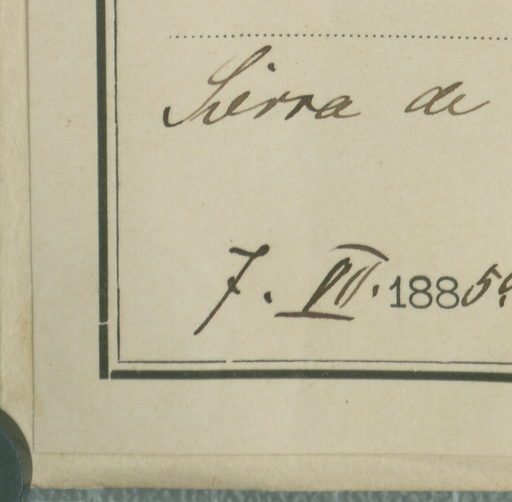 Sierra de
7. VII. 1885.